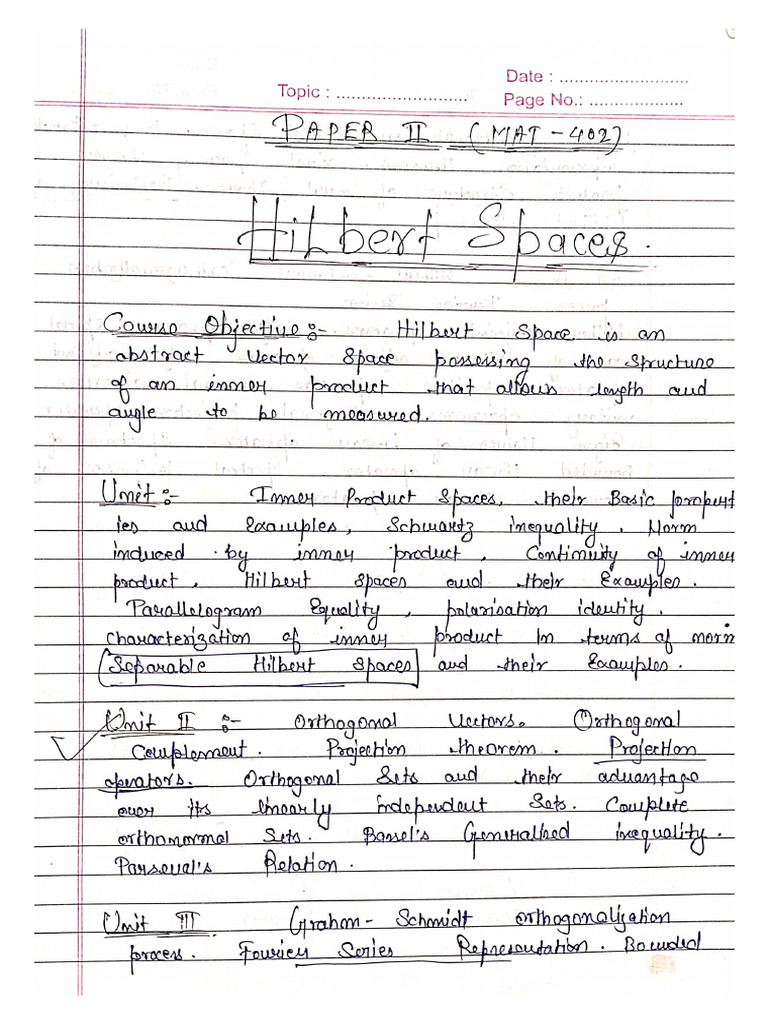 Date : ..........................
Topic : ..........................
Page No.: ...................
PAPER II (MAT-402)
Hilbert Spaces.
Course Objective :- Hilbert Space is an
abstract Vector Space possessing the Structure
of an inner product that allows length and
angle to be measured.
Unit :- Inner Product Spaces, their Basic propert
ies and Examples, Schwartz inequality. Norm
induced by inner product, Continuity of inner
product, Hilbert Spaces and their Examples.
Parallelogram Equality, polarisation identity.
characterization of inner product In terms of norm
Separable Hilbert Spaces and their Examples.
Unit II :- Orthogonal Vectors. Orthogonal
Complement. Projection theorem. Projection
operators. Orthogonal Sets and their advantage
over its linearly independent Sets. Complete
orthonormal Sets. Bassel's Generalised inequality.
Parseval's Relation.
Unit III Graham-Schmidt orthogonalization
process. Fourier Series Representation. Bounded